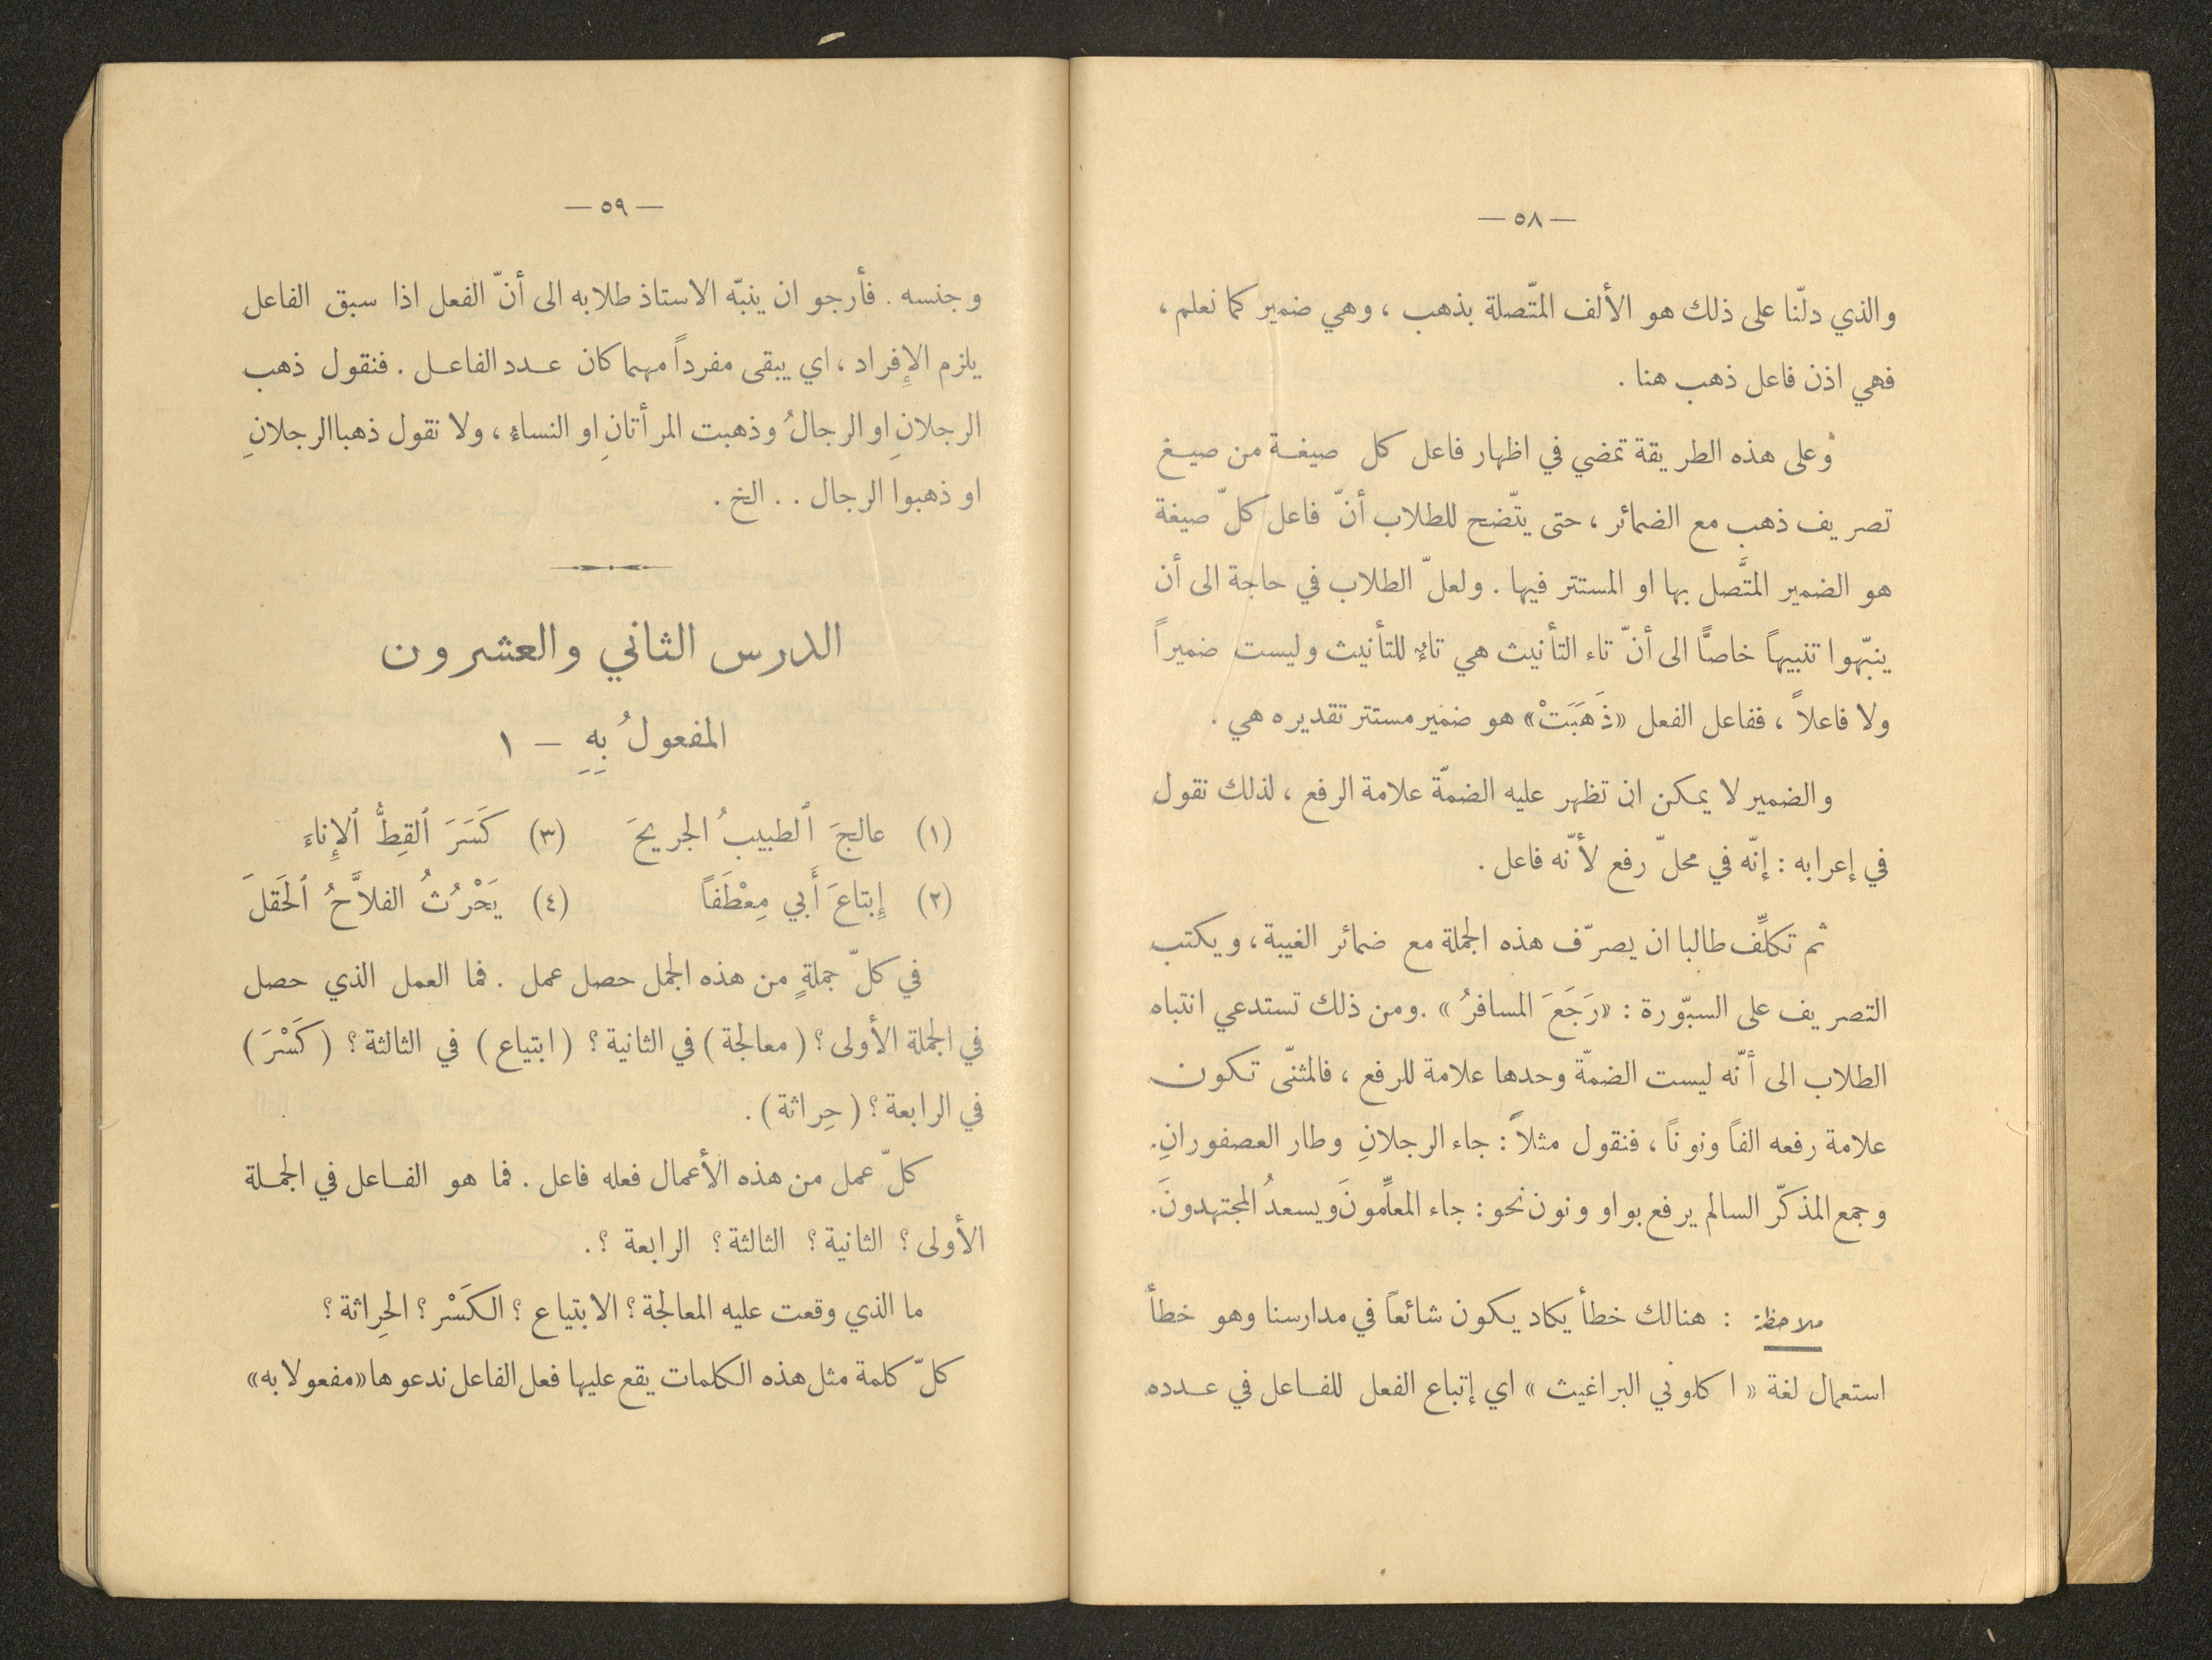 — ٥٨ —
والذي دلّنا على ذلك هو الألف المتّصلة بذهب ، وهي ضمير كما نعلم ،
فهي اذن فاعل ذهب هنا .
وعلى هذه الطريقة تمضي في اظهار فاعل كل صيغة من صيغ
تصريف ذهب مع الضمائر ، حتى يتّضح للطلاب أنّ فاعل كلّ صيغة
هو الضمير المتَّصل بها او المستتر فيها . ولعلّ الطلاب في حاجة الى أن
ينبّهوا تنبيهاً خاصًّا الى أنّ تاء التأنيث هي تاءٌ للتأنيث وليست ضميراً
ولا فاعلاً ، ففاعل الفعل «ذَهَبَتْ» هو ضمير مستتر تقديره هي .
والضمير لا يمكن ان تظهر عليه الضمّة علامة الرفع ، لذلك نقول
في إعرابه : إنّه في محلّ رفع لأنّه فاعل .
ثم تكلِّف طالبا ان يصرّف هذه الجملة مع ضمائر الغيبة ، ويكتب
التصريف على السبّورة : «رَجَعَ المسافرُ» . ومن ذلك تستدعي انتباه
الطلاب الى أنّه ليست الضمّة وحدها علامة للرفع ، فالمثنّى تكون
علامة رفعه الفاً ونوناً ، فنقول مثلاً : جاء الرجلانِ وطار العصفورانِ .
وجمع المذكّر السالم يرفع بواو ونون نحو : جاء المعلِّمونَ ويسعدُ المجتهدونَ .
ملاحظة : هنالك خطأ يكاد يكون شائعاً في مدارسنا وهو خطأ
استعمال لغة « اكلوني البراغيث » اي إتباع الفعل للفاعل في عدده
— ٥٩ —
وجنسه . فأرجو ان ينبّه الاستاذ طلابه الى أنّ الفعل اذا سبق الفاعل
يلزم الإِفراد ، اي يبقى مفرداً مهما كان عدد الفاعل . فنقول ذهب
الرجلانِ او الرجالُ وذهبت المرأتانِ او النساءُ ، ولا نقول ذهبا الرجلانِ
او ذهبوا الرجال . . الخ .
الدرس الثاني والعشرون
المفعولُ بِهِ – ١
(١) عالجَ ٱلطبيبُ الجريحَ (٣) كَسَرَ ٱلقِطُّ ٱلإِناءَ
(٢) إِبتاعَ أَبي مِعْطَفاً (٤) يَحْرُثُ الفلاَّحُ ٱلحَقلَ
في كلّ جملةٍ من هذه الجمل حصل عمل . فما العمل الذي حصل
في الجملة الأولى ؟ (معالجة) في الثانية ؟ (ابتياع) في الثالثة ؟ (كَسْرَ)
في الرابعة ؟ (حِراثة) .
كلّ عمل من هذه الأعمال فعله فاعل . فما هو الفاعل في الجملة
الأولى ؟ الثانية ؟ الثالثة ؟ الرابعة ؟ .
ما الذي وقعت عليه المعالجة ؟ الابتياع ؟ الكَسْر ؟ الحِراثة ؟
كلّ كلمة مثل هذه الكلمات يقع عليها فعل الفاعل ندعوها «مفعولا به»